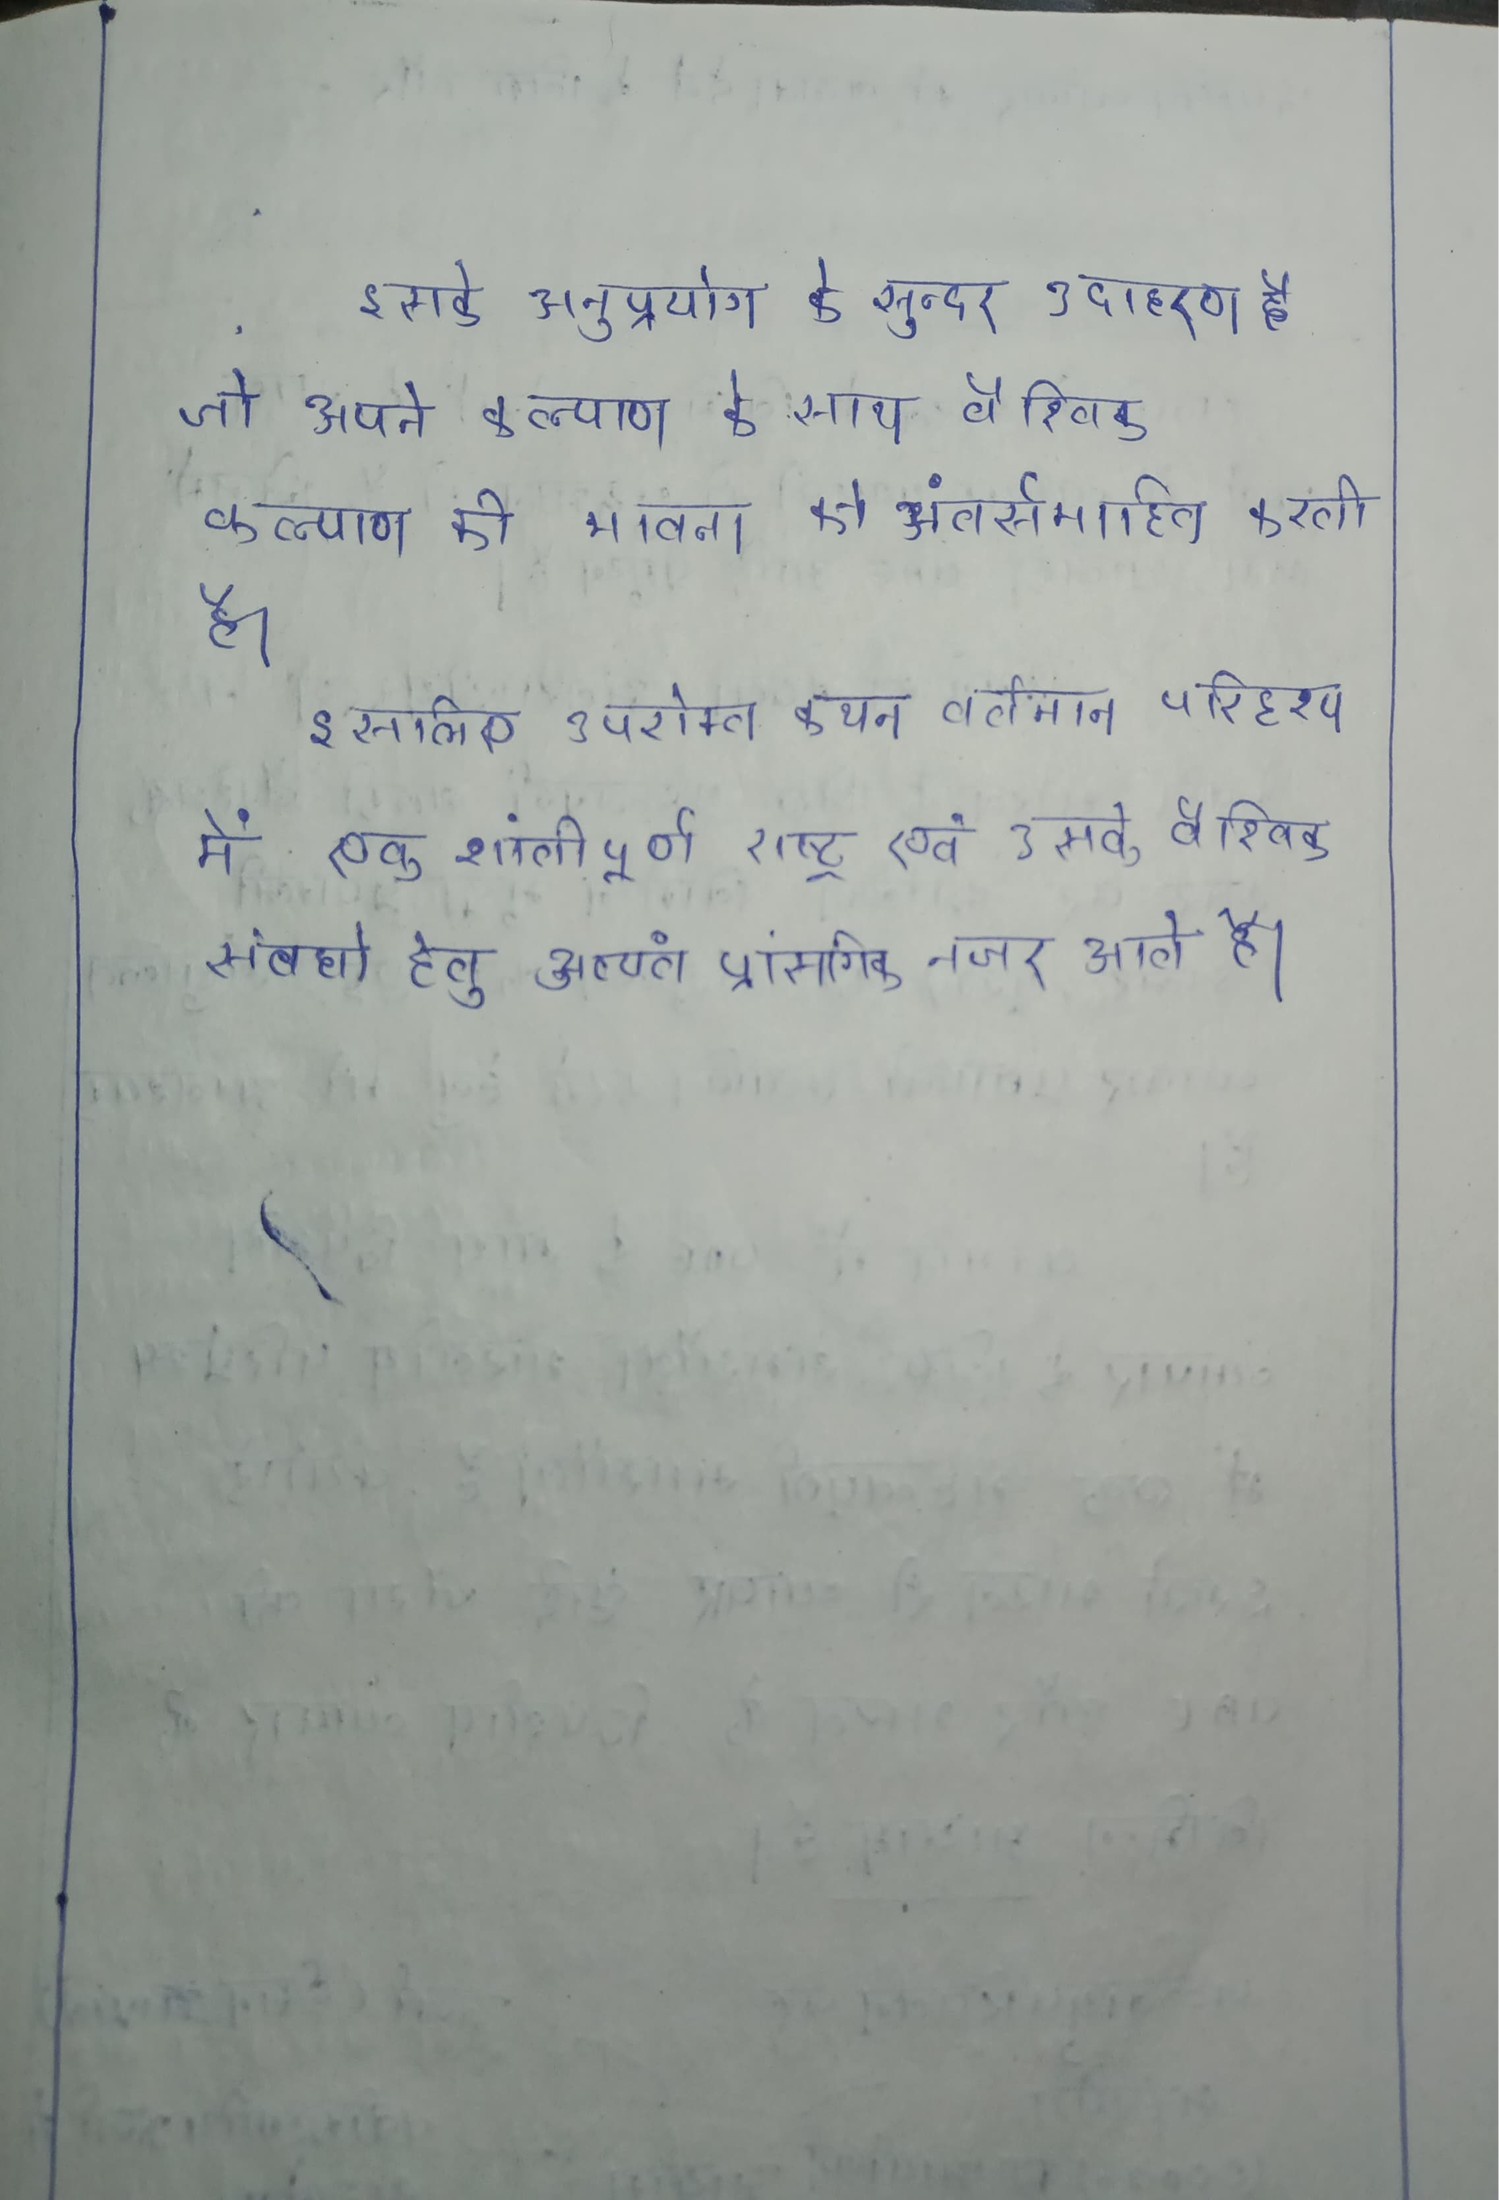 इसके अनुप्रयोग के सुन्दर उदाहरण है
जो अपने कल्याण के साथ वैश्विक
कल्याण की भावना को अंतर्समाहित करती
है।
इसलिए उपरोक्त कथन वर्तमान परिदृश्य
में एक शांतीपूर्ण राष्ट्र एवं उसके वैश्विक
संबधो हेतु अत्यतं प्रांसगिक नजर आते है।